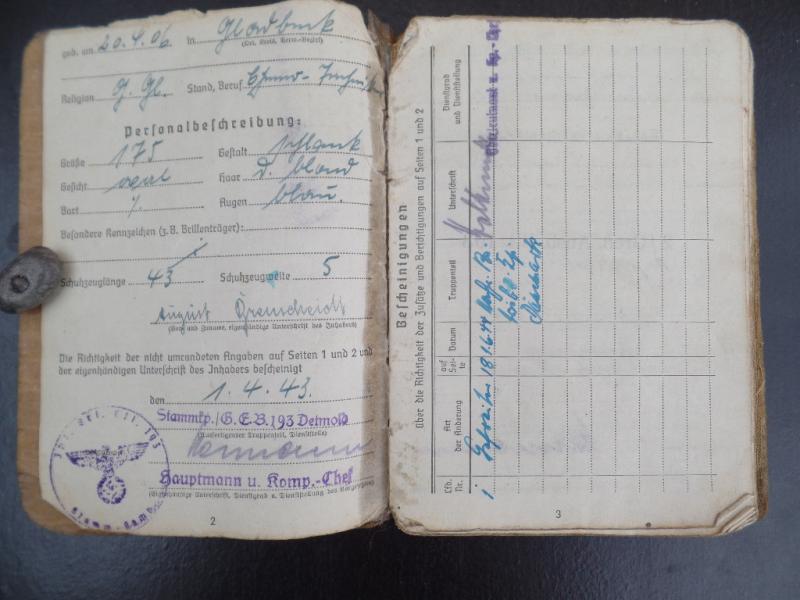 geb. am 20.4.06. in Gladbeck
(Ort, Kreis, Verw.-Bezirk)
Religion Stand, Beruf
Personalbeschreibung:
Größe 175 Gestalt schlank
Gesicht oval Haar d. blond
Bart ./. Augen blau.
Besondere Kennzeichen (z.B. Brillenträger):
Schuhzeuglänge 43 Schuhzeugweite 5
August
(Vor- und Zuname, eigenhändige Unterschrift des Inhabers)
Die Richtigkeit der nicht umrandeten Angaben auf Seiten 1 und 2 und
der eigenhändigen Unterschrift des Inhabers bescheinigt
den 1.4.43.
Stammkp./G.E.B.193 Detmold
(Ausfertigender Truppenteil, Dienststelle)
Hauptmann u. Komp.-Chef
(Eigenhändige Unterschrift, Dienstgrad u. Dienststellung des Vorgesetzten)
2
Bescheinigungen
über die Richtigkeit der Zusätze und Berichtigungen auf Seiten 1 und 2
Lfd. Nr.
Art der Änderung
auf Seite
Datum
Truppenteil
Unterschrift
Dienstgrad und Dienststellung
1 Gefreiter 18.1.44
u. Kp.-Chef
3